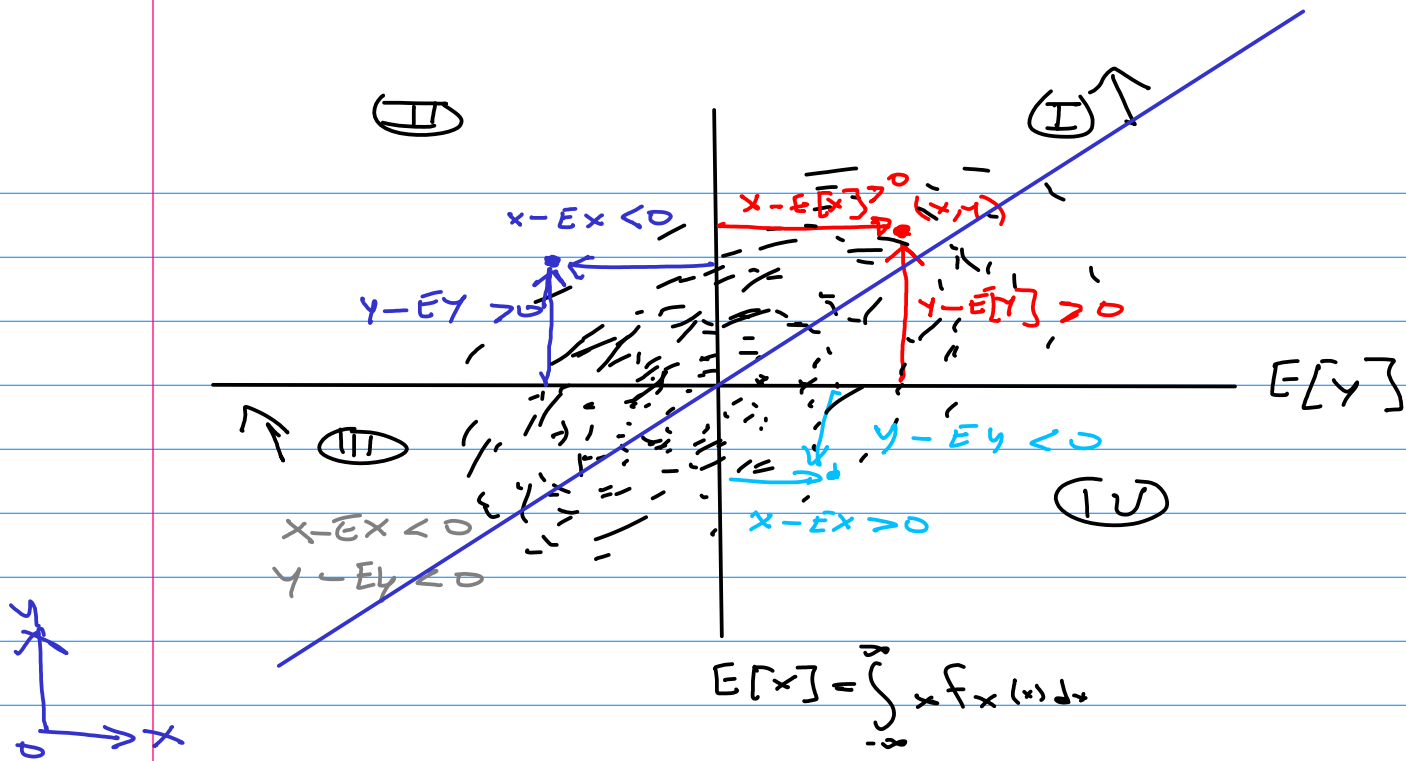 II
I
x - E[x] > 0
(x, y)
x - Ex < 0
y - Ey > 0
y - E[y] > 0
E[y]
III
y - Ey < 0
IV
x - Ex < 0
x - Ex > 0
y - Ey < 0
y
E[x] = ∫_{-∞}^{∞} x f_x(x) dx
0
x